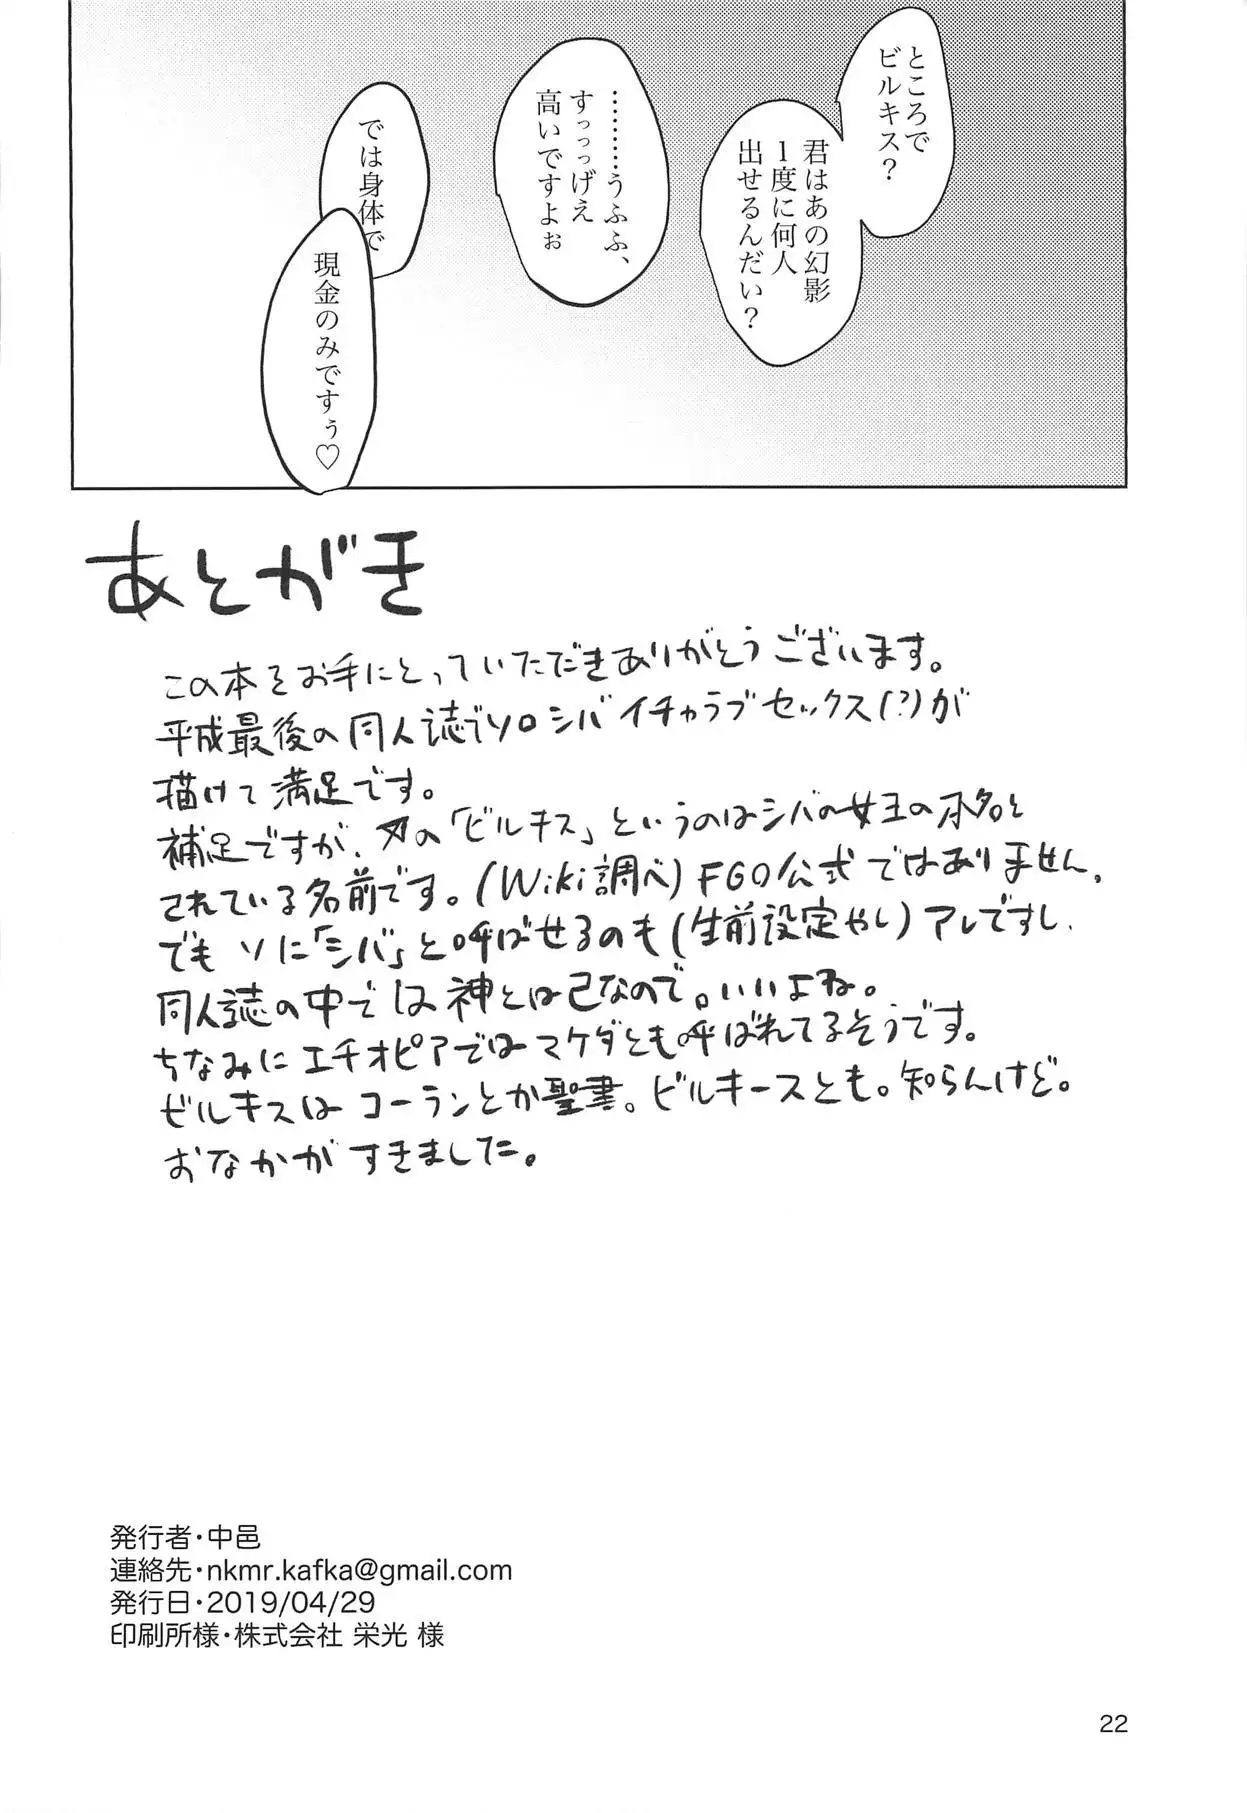 ところで
ビルキス?
君はあの幻影
1度に何人
出せるんだい?
………うふふ、
すっっっげえ
高いですよぉ
では身体で
現金のみですぅ♡
あとがき
この本をお手にとっていただきありがとうございます。
平成最後の同人誌でソロシバイチャラブセックス(?)が
描けて満足です。
補足ですが、の「ビルキス」というのはシバの女王の本名と
されている名前です。(Wiki調べ)FGO公式ではありません。
でも ソに「シバ」と呼ばせるのも(生前設定やし)アレですし、
同人誌の中では神とは己なので。いいよね。
ちなみにエチオピアではマケダとも呼ばれてるそうです。
ビルキスはコーランとか聖書。ビルキースとも。知らんけど。
おなかがすきました。
発行者・中邑
連絡先・nkmr.kafka@gmail.com
発行日・2019/04/29
印刷所様・株式会社 栄光 様
22